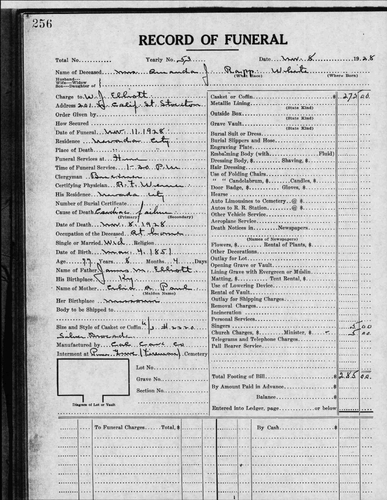 256
RECORD OF FUNERAL
Total No. Yearly No. 53 Date Nov. 8 1928
Name of Deceased Mrs. Amanda J. Rapp White
(What Race) (Where Born)
Husband—
Wife—
Son—
Daughter—of
Charge to W. J. Elliott
Address 221 Calif. St. Stockton
Order Given by
How Secured
Date of Funeral Nov. 11, 1928
Residence Nevada City
Place of Death
Funeral Services at Home
Time of Funeral Services 1-30 P.M.
Clergyman
Certifying Physician
His Residence Nevada City
Number of Burial Certificate
Cause of Death Cardiac failure
(Primary) (Secondary)
Date of Death Nov. 8, 1928
Occupation of the Deceased At home
Single or Married Wid. Religion
Date of Birth Nov. 4, 1851
Age 77 Years Months 4 Days
Name of Father James M. Elliott
His Birthplace Ky.
Name of Mother A Paul
(Maiden Name)
Her Birthplace Missouri
Body to be Shipped to
Size and Style of Casket or Coffin 6/3 # 2220
Silver Brocade
Manufactured by Cal. Cas. Co
Interment at Pine Grove Cemetery
Lot No.
Grave No.
Section No.
Diagram of Lot or Vault
Casket or Coffin 275 00
Metallic Lining
(State Kind)
Outside Box
(State Kind)
Grave Vault
(State Kind)
Burial Suit or Dress
Burial Slippers and Hose
Engraving Plate
Embalming Body (with Fluid)
Dressing Body, $ Shaving, $
Hair Dressing
Use of Folding Chairs
" " Candelabrum, $ Candles, $
Door Badge, $ Gloves, $
Hearse
Auto Limousines to Cemetery @ $
Autos to R. R. Station @ $
Other Vehicle Service
Aeroplane Service
Death Notices in Newspapers
(Names of Newspapers)
Flowers, $ Rental of Plants, $
Other Decorations
Outlay for Lot
Opening Grave or Vault
Lining Grave with Evergreen or Muslin
Matting, $ Tent Rental, $
Use of Lowering Device
Rental of Vault
Outlay for Shipping Charges
Removal Charges
Incineration
Personal Services
Singers 5 00
Church Charges, $ Minister, 5 00
Telegrams and Telephone Charges
Pall Bearer Service
Total Footing of Bill $ 285 00
By Amount Paid in Advance
Balance
Entered into Ledger, page or below
To Funeral Charges. Total, $ By Cash $